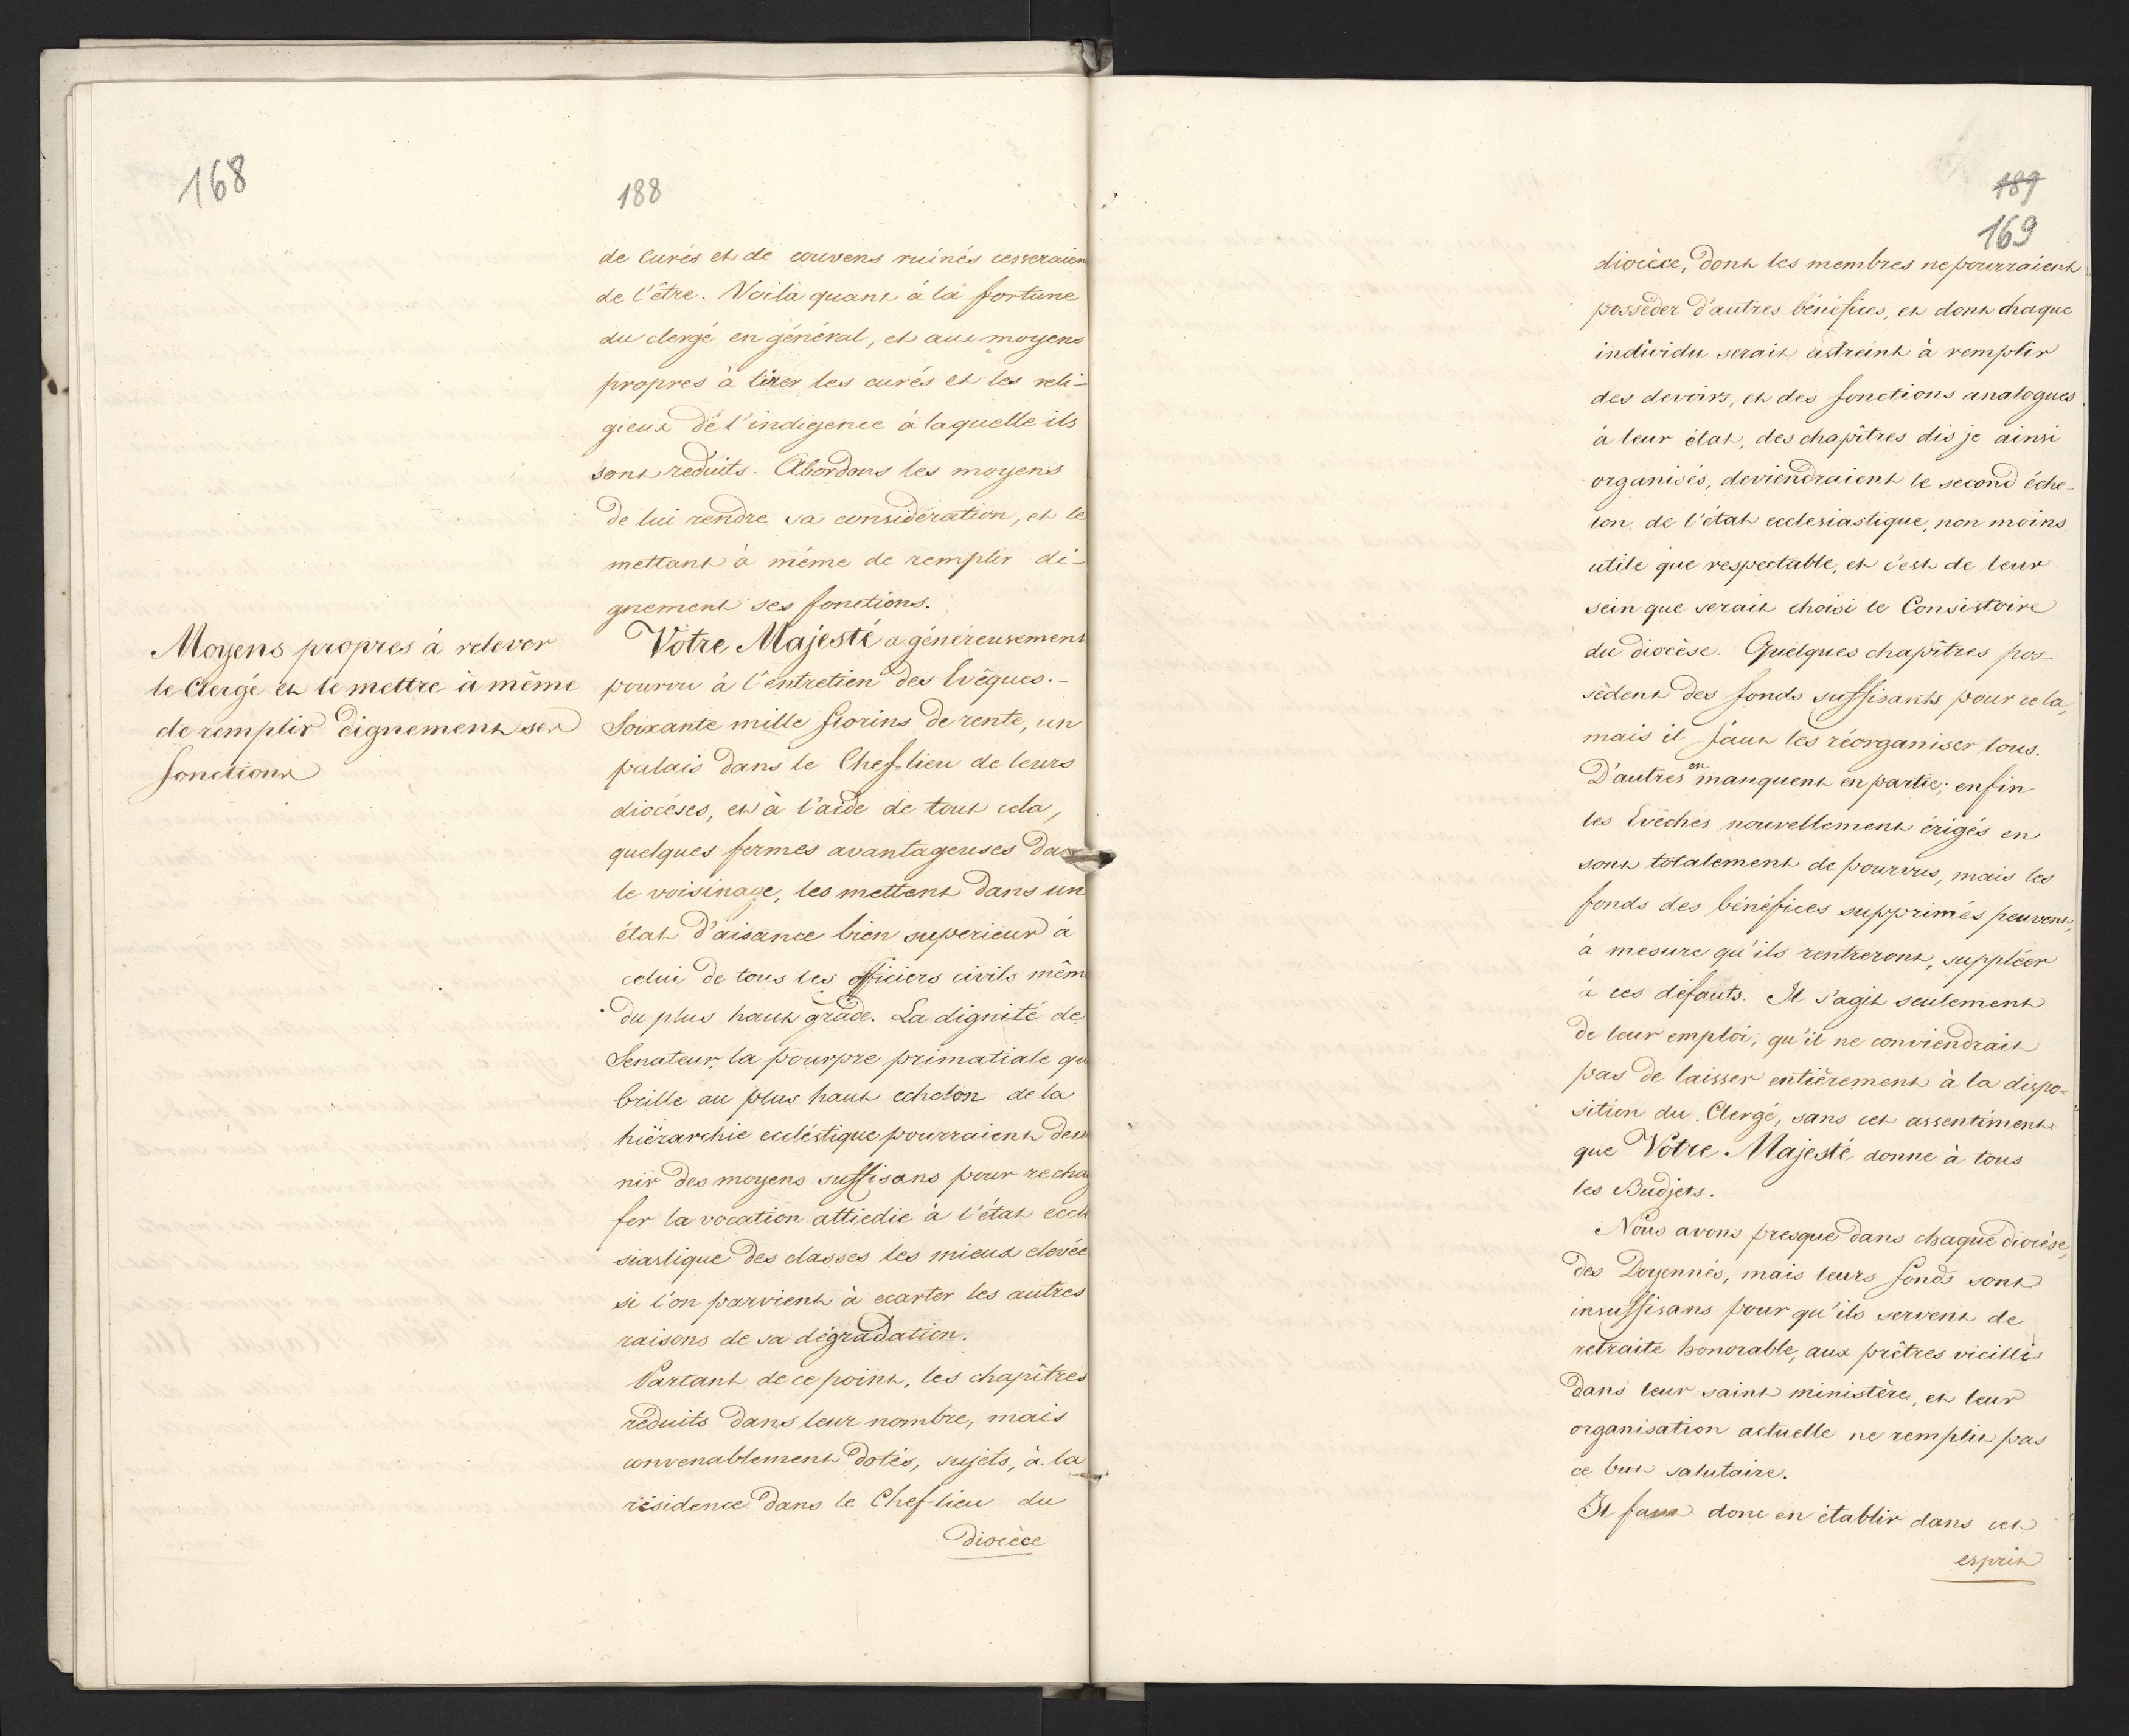 168
188
de curés et de couvens ruinés cesseraien
de l'être. Voila quant à la fortune
du clergé en général, et aux moyens
propres à tirer les curés et les reli-
gieux de l'indigence à laquelle ils
sont reduits. Abordons les moyens
de lui rendre sa considération, et le
mettant à même de remplir di-
gnement ses fonctions.
Moyens propres à relever
le Clergé et le mettre à même
de remplir dignement ses
fonctions
Votre Majesté a généreusement
pourvu à l'entretien des Evêques.-
Soixante mille florins de rente, un
palais dans le Chef-lieu de leurs
diocéses, et à l'aide de tout cela,
quelques fermes avantageuses da
le voisinage, les mettent dans un
état d'aisance bien superieur à
celui de tous les officiers civils mêm
du plus haut grade. La dignité de
Senateur, la pourpre primatiale qu
brille au plus haut echelon de la
hiérarchie ecclèstique pourraient deve
nir des moyens suffisans pour rechau
fer la vocation attiedie à l'état eccle
siastique des classes les mieux elevée
si l'on parvient à ecarter les autres
raisons de sa dégradation.
Partant de ce point, les chapîtres
réduits dans leur nombre, mais
convenablement dotés, sujets, à la
résidence dans le Chef-lieu du
diocèce
189
169
diocèce, dont les membres ne pourraient
posséder d'autres bénéfices, et dont chaque
individu serait astreint à remplir
des devoirs, et des fonctions analogues
à leur état, des chapîtres dis je ainsi
organisés, deviendraient le second éche-
lon de l'état ecclesiastique, non moins
utile que respectable, et c'est de leur
sein que serait choisi le Consistoire
du diocèse. Quelques chapîtres pos-
sèdent des fonds suffisants pour cela,
mais il faut les réorganiser tous.
D'autres en manquent en partie; enfin
les Evêchés nouvellement érigés en
sont totalement de pourvus, mais les
fonds des bénéfices supprimés peuvent,
à mesure qu'ils rentreront, suppléer
à ces défauts. Il s'agit seulement
de leur emploi, qu'il ne conviendrait
pas de laisser entièrement à la dispo-
sition du Clergé, sans cet assentiment
que Votre Majesté donne à tous
les Budjets.
Nous avons presque dans chaque diocèse,
des Doyennés, mais leurs fonds sont
insuffisans pour qu'ils servent de
retraite honorable, aux prêtres vieillis
dans leur saint ministère, et leur
organisation actuelle ne remplit pas
ce but salutaire.
Il faut donc en établir dans cet
esprit